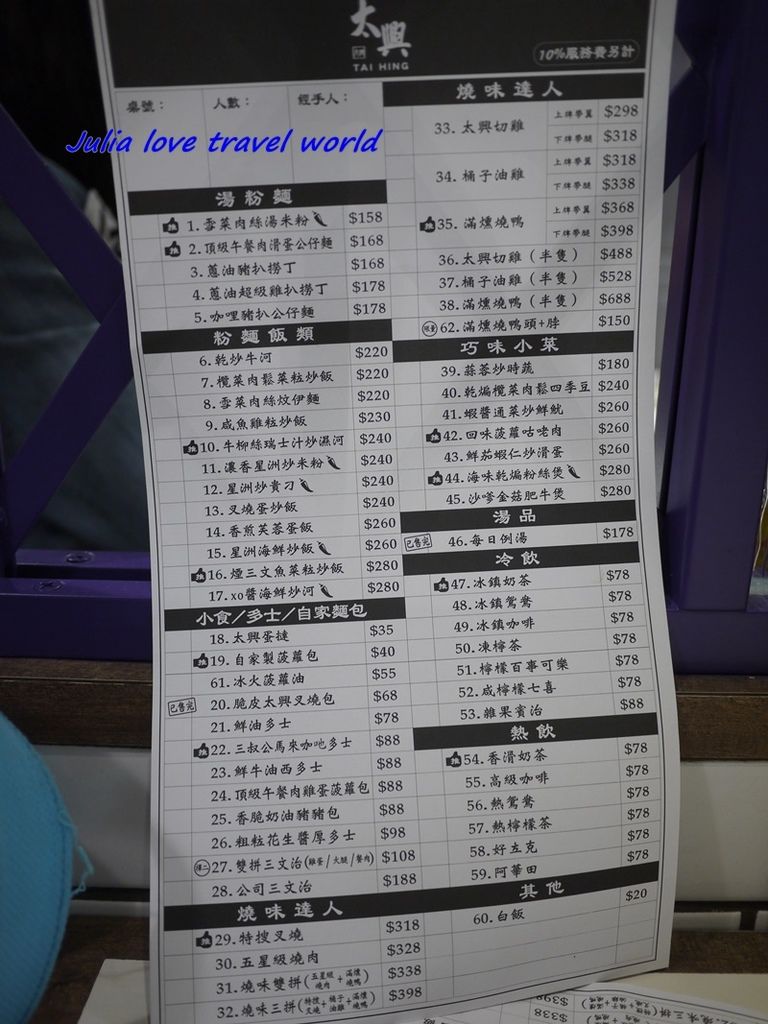 太興
TAI HING
10%服務費另計
桌號：
人數：
經手人：
Julia love travel world
湯粉麵
推 1. 雪菜肉絲湯米粉 $158
推 2. 頂級午餐肉滑蛋公仔麵 $168
3. 蔥油豬扒撈丁 $168
4. 蔥油超級雞扒撈丁 $178
5. 咖哩豬扒公仔麵 $178
粉麵飯類
6. 乾炒牛河 $220
7. 欖菜肉鬆菜粒炒飯 $220
8. 雪菜肉絲炆伊麵 $220
9. 咸魚雞粒炒飯 $230
推 10. 牛柳絲瑞士汁炒濕河 $240
11. 濃香星洲炒米粉 $240
12. 星洲炒貴刁 $240
13. 叉燒蛋炒飯 $240
14. 香煎芙蓉蛋飯 $260
15. 星洲海鮮炒飯 $260
推 16. 煙三文魚菜粒炒飯 $280
17. xo醬海鮮炒河 $280
小食/多士/自家麵包
18. 太興蛋撻 $35
推 19. 自家製菠蘿包 $40
61. 冰火菠蘿油 $55
已售完 20. 脆皮太興叉燒包 $68
21. 鮮油多士 $78
推 22. 三叔公馬來咖吔多士 $88
23. 鮮牛油西多士 $88
24. 頂級午餐肉雞蛋菠蘿包 $88
25. 香脆奶油豬豬包 $88
26. 粗粒花生醬厚多士 $98
擇二 27. 雙拼三文治(雞蛋/火腿/餐肉) $108
28. 公司三文治 $188
燒味達人
推 29. 特搜叉燒 $318
30. 五星級燒肉 $328
31. 燒味雙拼(五星級燒肉+滿燻燒鴨) $338
32. 燒味三拼(特搜叉燒+桶子油雞+滿燻燒鴨) $398
燒味達人
33. 太興切雞 上牌帶翼 $298
下牌帶腿 $318
34. 桶子油雞 上牌帶翼 $318
下牌帶腿 $338
推 35. 滿燻燒鴨 上牌帶翼 $368
下牌帶腿 $398
36. 太興切雞（半隻） $488
37. 桶子油雞（半隻） $528
38. 滿燻燒鴨（半隻） $688
限量 62. 滿燻燒鴨頭+脖 $150
巧味小菜
39. 蒜蓉炒時蔬 $180
40. 乾煸欖菜肉鬆四季豆 $240
41. 蝦醬通菜炒鮮魷 $260
推 42. 回味菠蘿咕咾肉 $260
43. 鮮茄蝦仁炒滑蛋 $260
推 44. 海味乾煸粉絲煲 $280
45. 沙嗲金菇肥牛煲 $280
湯品
已售完 46. 每日例湯 $178
冷飲
推 47. 冰鎮奶茶 $78
48. 冰鎮鴛鴦 $78
49. 冰鎮咖啡 $78
50. 凍檸茶 $78
51. 檸檬百事可樂 $78
52. 咸檸檬七喜 $78
53. 雜果賓治 $88
熱飲
推 54. 香滑奶茶 $78
55. 高級咖啡 $78
56. 熱鴛鴦 $78
57. 熱檸檬茶 $78
58. 好立克 $78
59. 阿華田 $78
其他
60. 白飯 $20